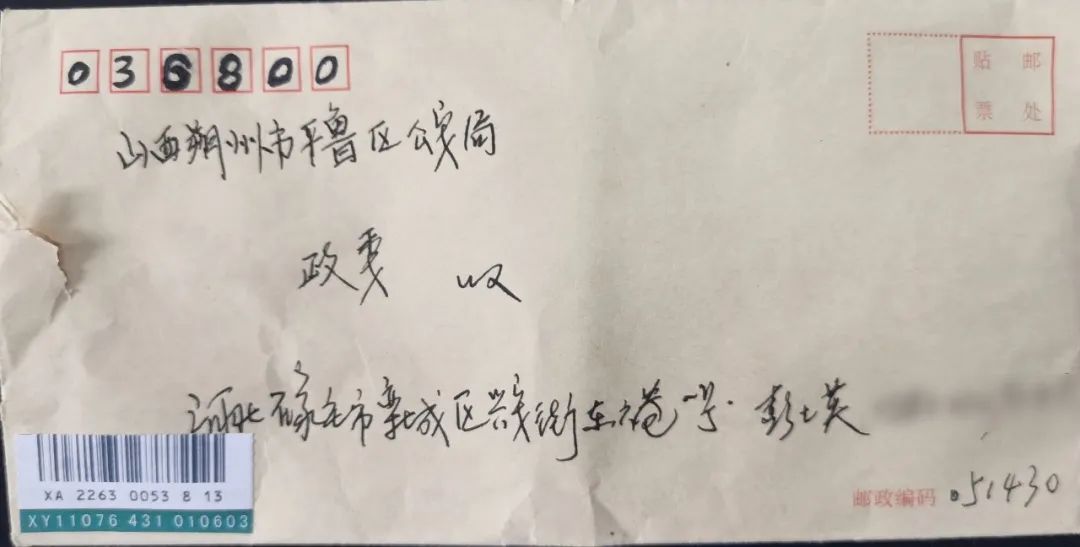 036800
贴 邮
票 处
山西朔州市平鲁区公安局
政委 收
河北石家庄市栾城区兴安街东六巷一号·彭士英
XA 2263 0053 8 13
XY11076 431 010603
邮政编码 051430